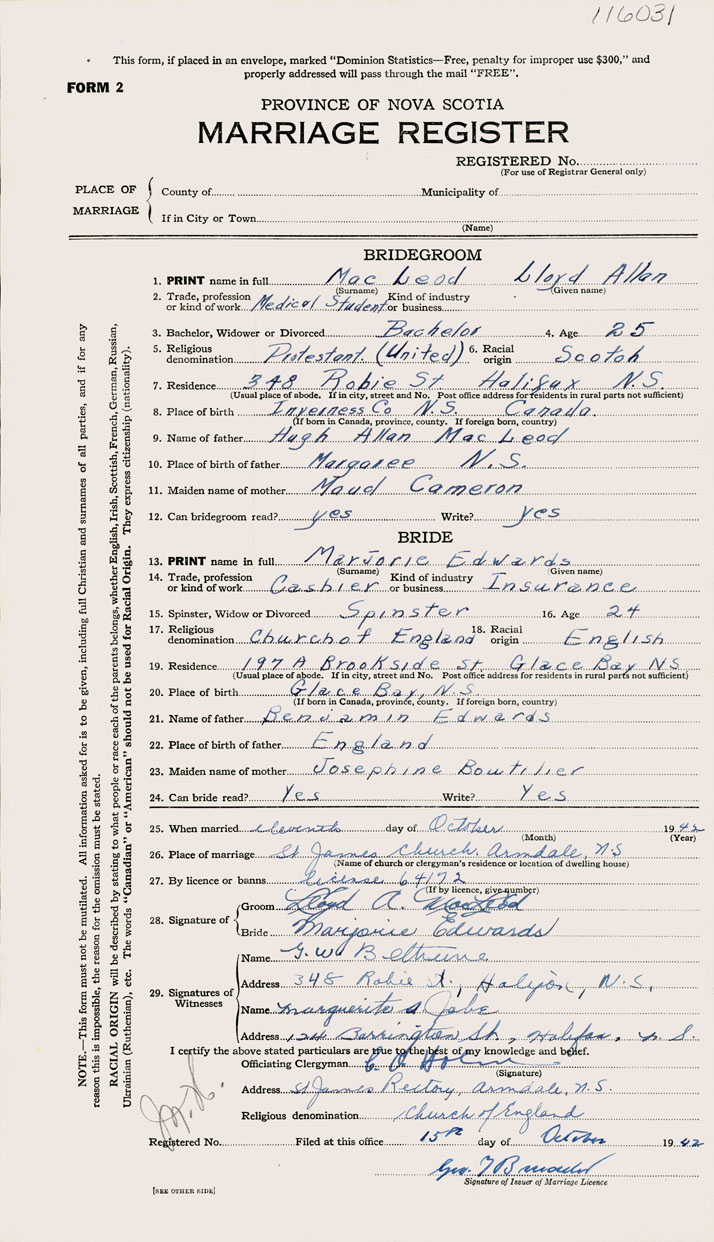 116031
This form, if placed in an envelope, marked "Dominion Statistics—Free, penalty for improper use $300," and
properly addressed will pass through the mail "FREE".
FORM 2
PROVINCE OF NOVA SCOTIA
MARRIAGE REGISTER
REGISTERED No.
(For use of Registrar General only)
PLACE OF MARRIAGE
County of Municipality of
If in City or Town
(Name)
BRIDEGROOM
1. PRINT name in full Mac Leod Lloyd Allan
(Surname) (Given name)
2. Trade, profession or kind of work Medical Student Kind of industry or business
3. Bachelor, Widower or Divorced Bachelor 4. Age 25
5. Religious denomination Protestant (United) 6. Racial origin Scotch
7. Residence 348 Robie St Halifax N.S.
(Usual place of abode. If in city, street and No. Post office address for residents in rural parts not sufficient)
8. Place of birth Inverness Co N.S. Canada.
(If born in Canada, province, county. If foreign born, country)
9. Name of father Hugh Allan Mac Leod
10. Place of birth of father Margaree N.S.
11. Maiden name of mother Maud Cameron
12. Can bridegroom read? yes Write? yes
BRIDE
13. PRINT name in full Marjorie Edwards
(Surname) (Given name)
14. Trade, profession or kind of work Cashier Kind of industry or business Insurance
15. Spinster, Widow or Divorced Spinster 16. Age 24
17. Religious denomination Church of England 18. Racial origin English
19. Residence 197 A Brookside St. Glace Bay NS
(Usual place of abode. If in city, street and No. Post office address for residents in rural parts not sufficient)
20. Place of birth Glace Bay, N.S.
(If born in Canada, province, county. If foreign born, country)
21. Name of father Benjamin Edwards
22. Place of birth of father England
23. Maiden name of mother Josephine Boutilier
24. Can bride read? Yes Write? Yes
25. When married eleventh day of October 1942
(Month) (Year)
26. Place of marriage St James Church. Armdale, N.S
(Name of church or clergyman's residence or location of dwelling house)
27. By licence or banns License 64172
(If by licence, give number)
28. Signature of
Groom Lloyd A. MacLeod
Bride Marjorie Edwards
29. Signatures of Witnesses
Name G. W. Bethune
Address 348 Robie St., Halifax, N.S.
Name Marguerite
Address 124 Barrington St., Halifax, N.S.
I certify the above stated particulars are true to the best of my knowledge and belief.
Officiating Clergyman
(Signature)
Address St James Rectory, Armdale, N.S.
Religious denomination Church of England
Registered No. Filed at this office 15th day of October 1942
Signature of Issuer of Marriage Licence
[SEE OTHER SIDE]
NOTE.—This form must not be mutilated. All information asked for is to be given, including full Christian and surnames of all parties, and if for any
reason this is impossible, the reason for the omission must be stated.
RACIAL ORIGIN will be described by stating to what people or race each of the parents belongs, whether English, Irish, Scottish, French, German, Russian,
Ukrainian (Ruthenian), etc. The words "Canadian" or "American" should not be used for Racial Origin. They express citizenship (nationality).